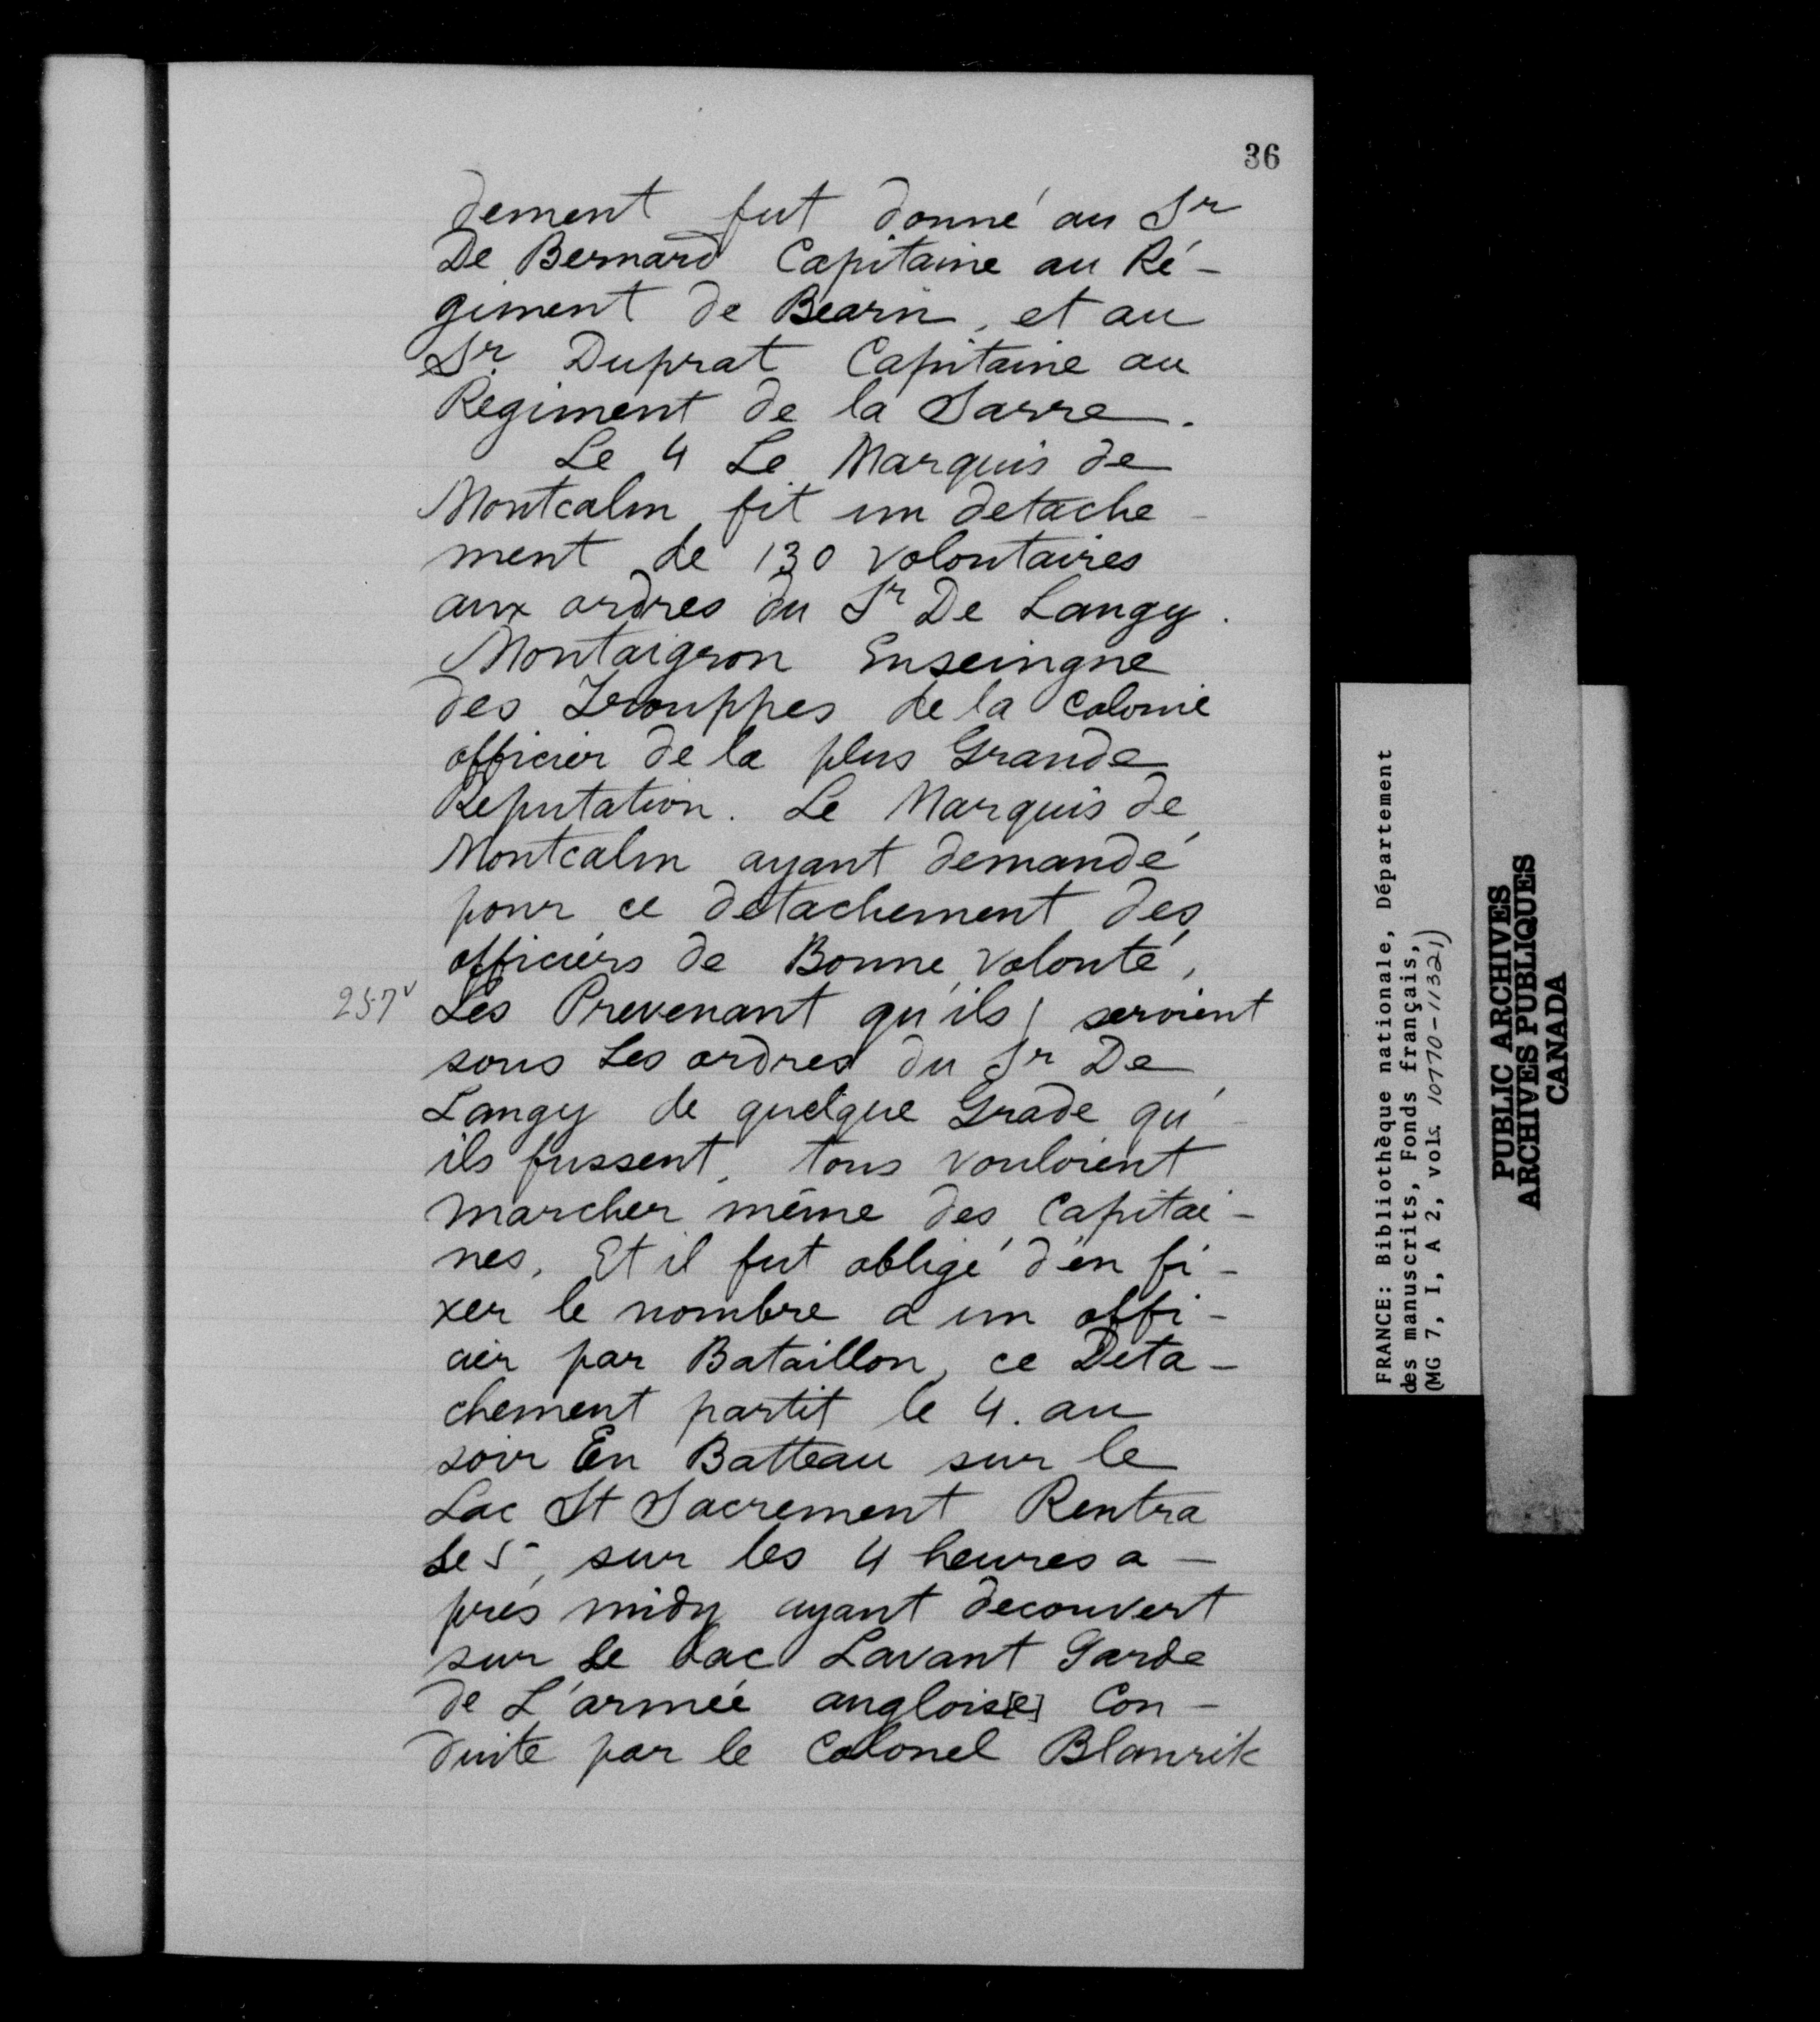 36
dement fut donné au Sr
De Bernard Capitaine au Ré-
giment de Bearn, et au
Sr. Duprat Capitaine au
Regiment de la Sarre.
Le 4 Le Marquis de
Montcalm fit un detache-
ment de 130 volontaires
aux ordres du Sr De Langy.
Montaigron Enseingne
des Trouppes de la Colonie
officier de la plus Grande
Reputation. Le Marquis de
Montcalm ayant demandé
pour ce detachement des
officiers de Bonne volonté,
257v Les Prevenant qu'ils / seroient
sous Les ordres du Sr De
Langy de quelque Grade qu'-
ils fussent, tous vouloient
marcher même des Capitai-
nes, Et il fut obligé d'en fi-
xer le nombre a un offi-
cier par Bataillon, ce Deta-
chement partit le 4. au
soir En Batteau sur le
Lac St Sacrement Rentra
Le 5, sur les 4 heures a-
près midy ayant decouvert
sur Le Lac Lavant Garde
de L'armée anglois[e] Con-
duite par le Colonel Blanrik
FRANCE: Bibliothèque nationale, Département
des manuscrits, Fonds français,
(MG 7, I, A 2, vols. 10770-11321)
PUBLIC ARCHIVES
ARCHIVES PUBLIQUES
CANADA